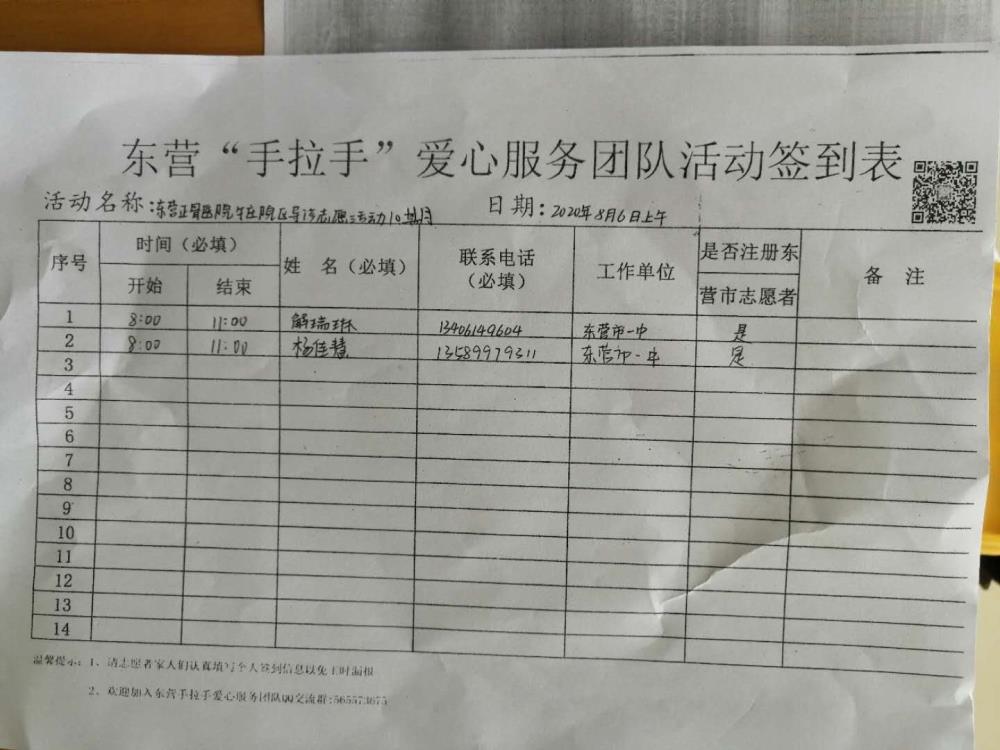 东营“手拉手”爱心服务团队活动签到表
活动名称:东营正骨医院 院区导诊志愿 活动10 日期:2020年8月6日上午
序号 时间（必填） 姓 名（必填） 联系电话（必填） 工作单位 是否注册东营市志愿者 备 注
开始 结束
1 8:00 11:00 解瑞琳 13406149604 东营市一中 是
2 8:00 11:00 杨佳慧 13589979311 东营市一中 是
3
4
5
6
7
8
9
10
11
12
13
14
温馨提示:1、请志愿者家人们认真填写个人签到信息以免工时漏报
2、欢迎加入东营手拉手爱心服务团队QQ交流群:565573675